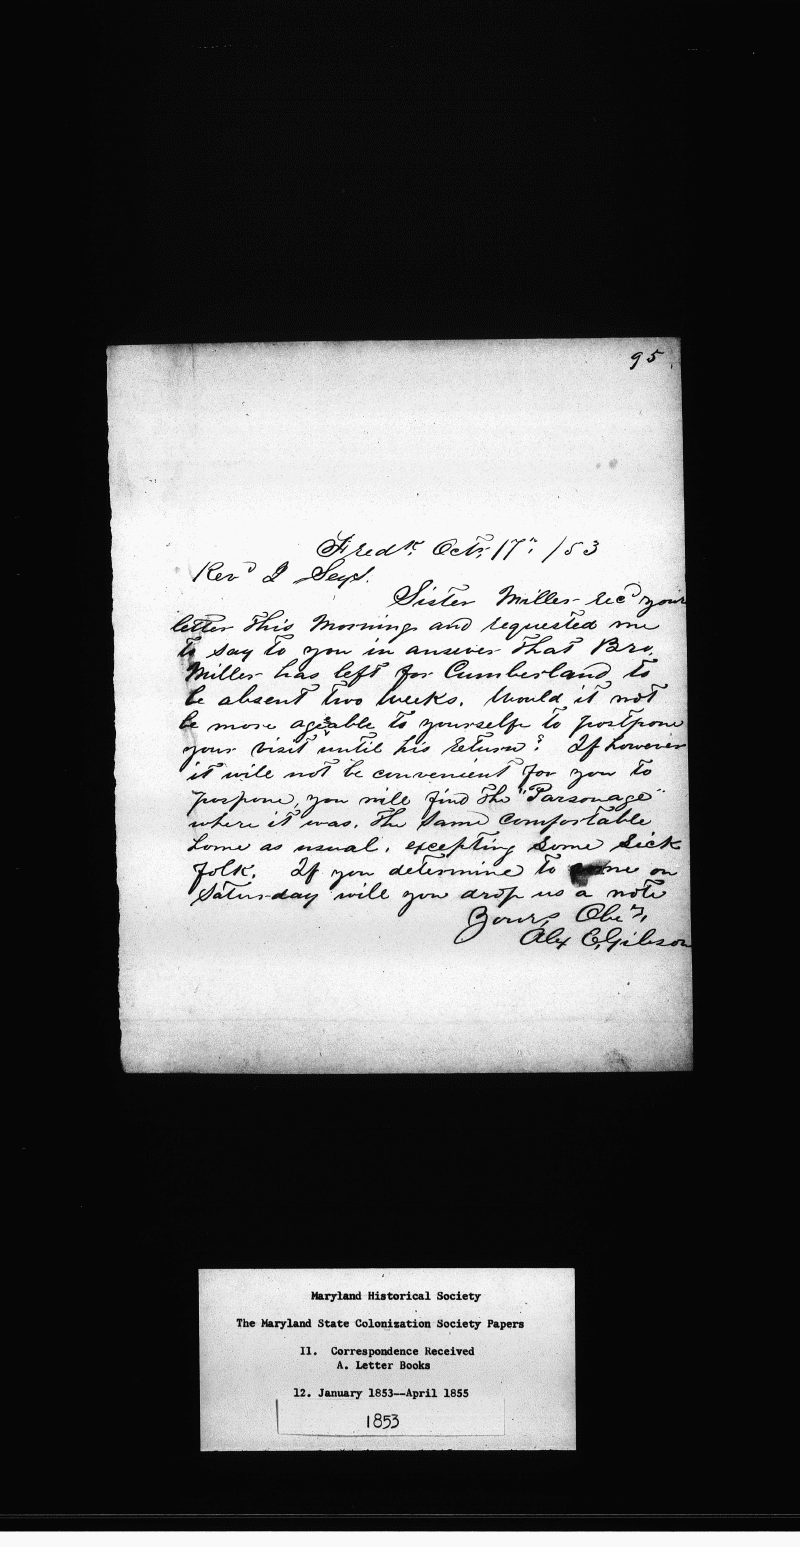 95
Fredk. Octr. 17th, /53
Revd J Seys.
Sister Miller recd your
letter this Morning and requested me
to say to you in answer that Bro.
Miller has left for Cumberland, to
be absent two weeks. Would it not
be more agreable to yourself to postpone
your visit until his return? If however
it will not be convenient for you to
pospone, you will find the "Parsonage"
where it was, the same comfortable
home as usual, excepting some sick
folk. If you determine to come on
Saturday will you drop us a note
Yours, Obt.,
Alex E. Gibson
Maryland Historical Society
The Maryland State Colonization Society Papers
II. Correspondence Received
A. Letter Books
12. January 1853--April 1855
1853